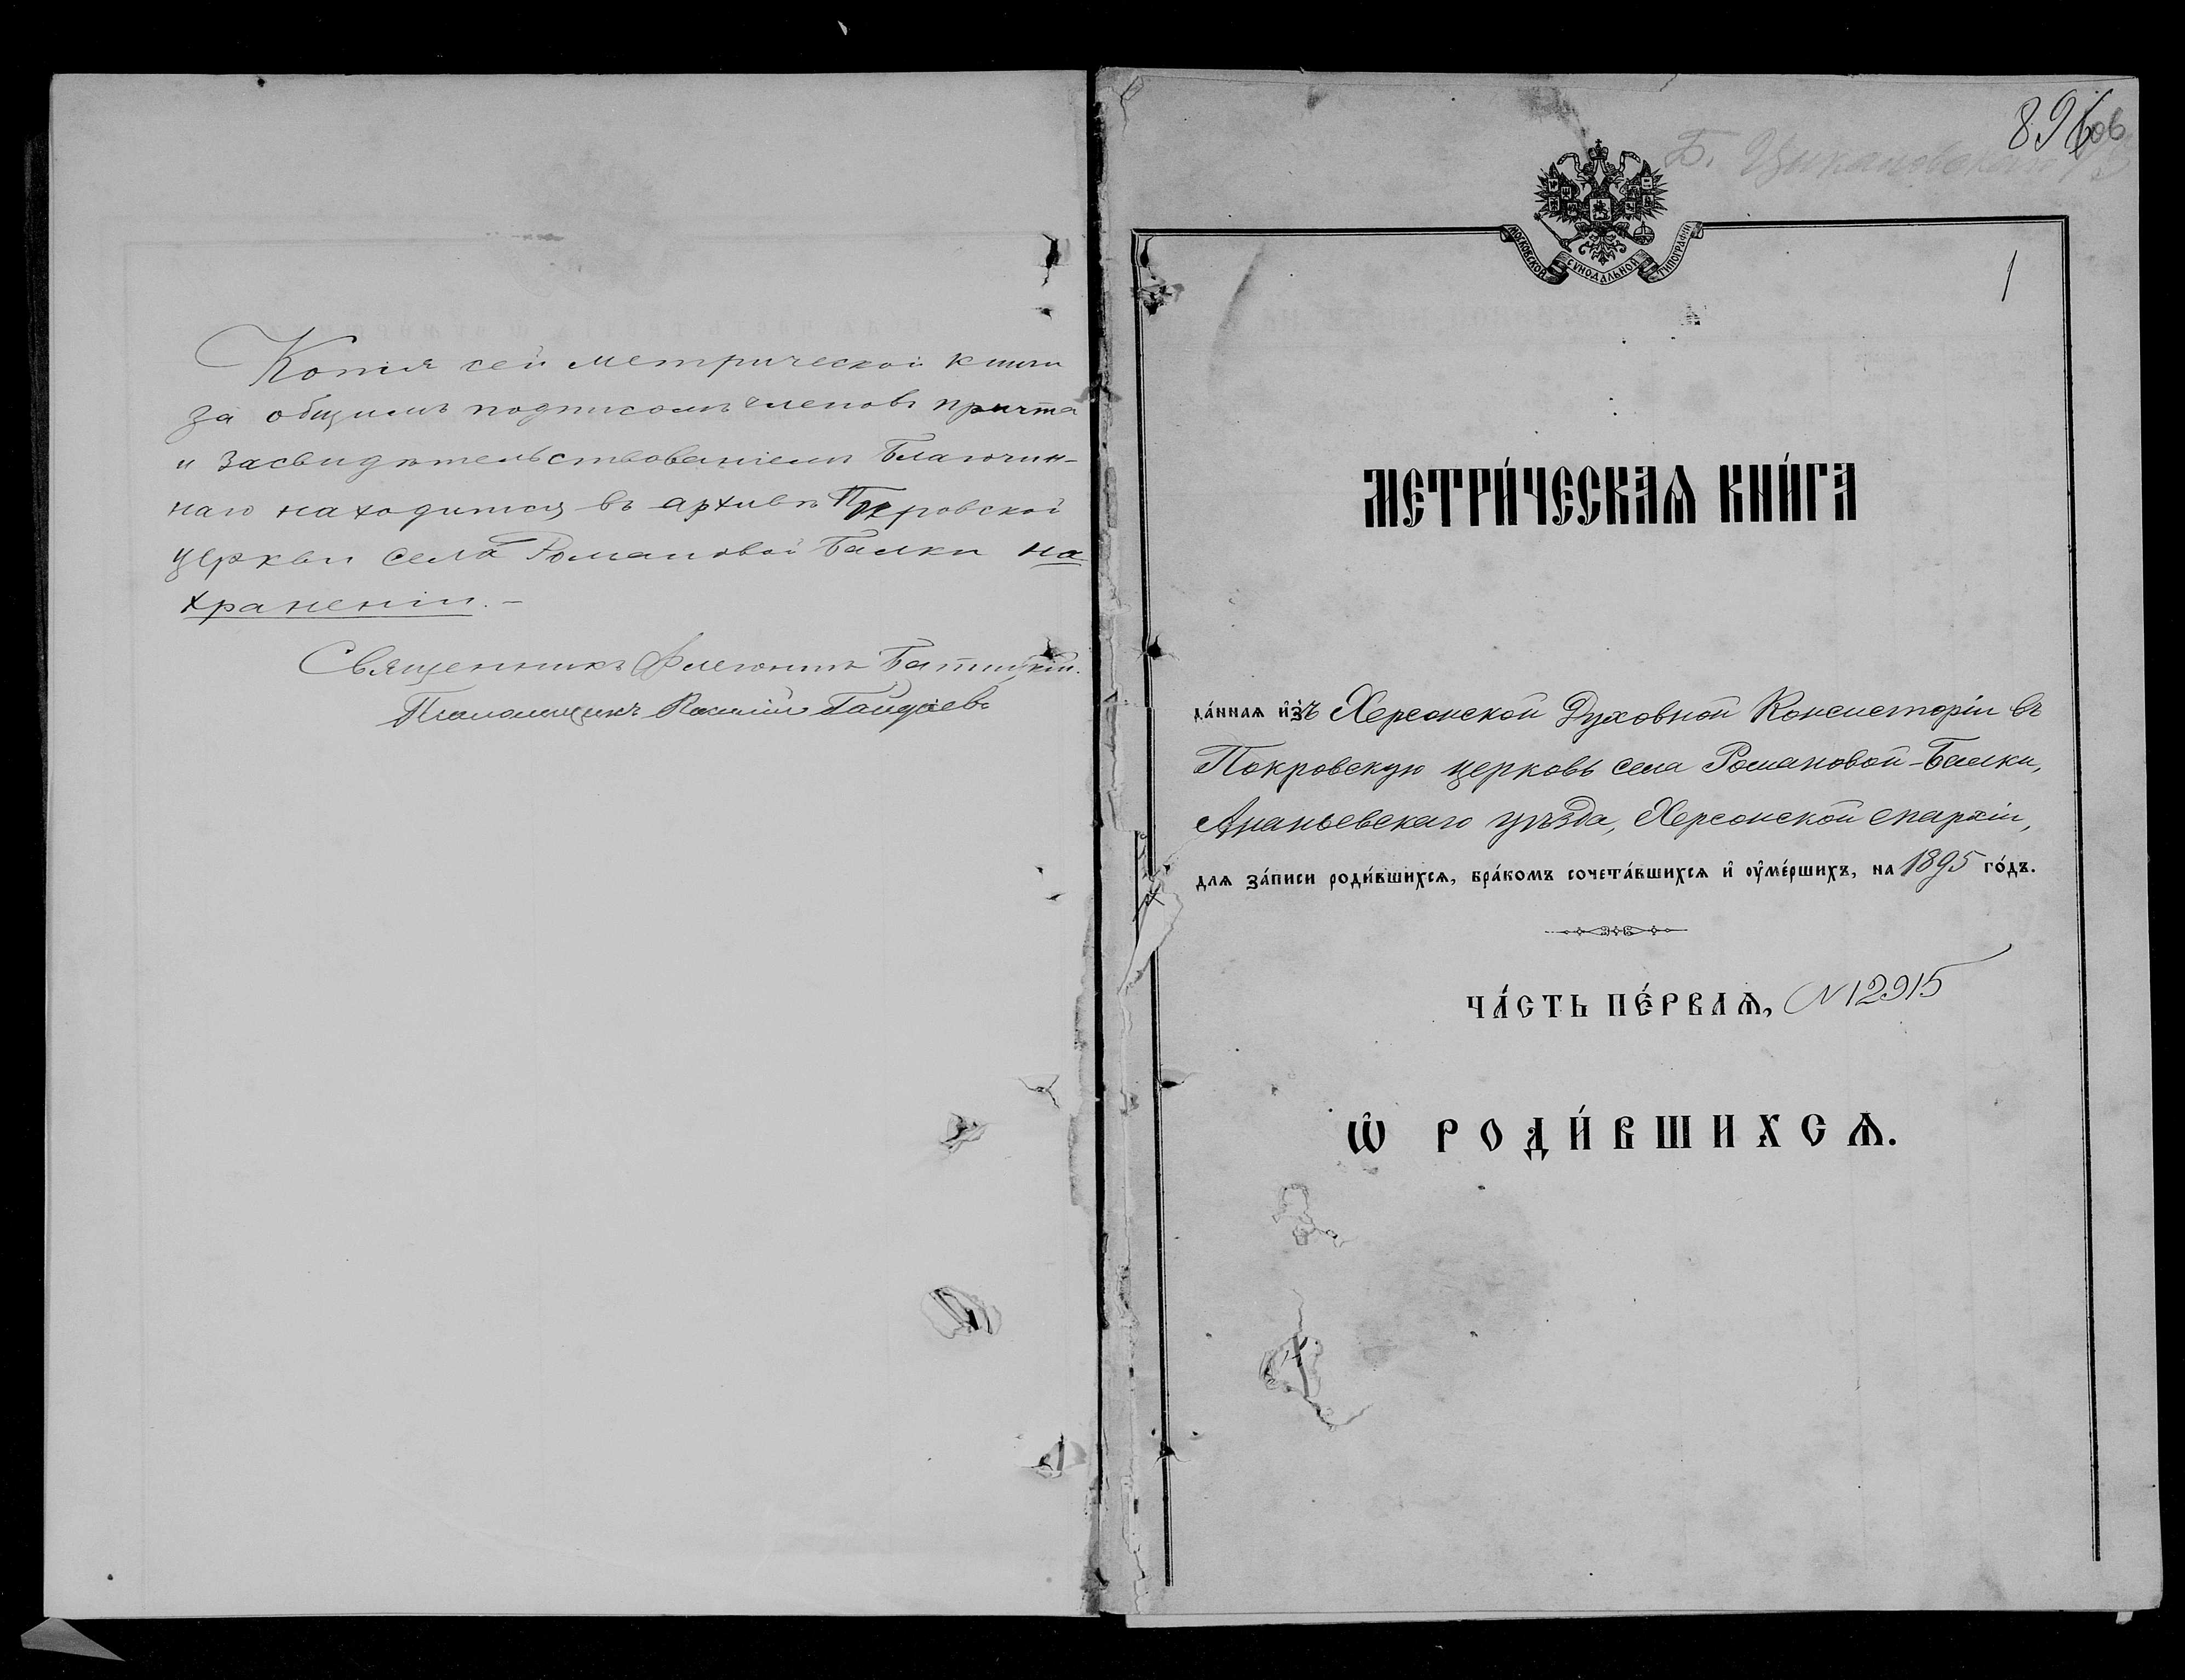 Копія сей метрической книги
за общимъ подписомъ членовъ причта
и засвидѣтельствованіемъ Благочин-
наго находится въ архивѣ Покровской
церкви села Романовой Балки на
храненіи. –
Священникъ Флегонтъ
Псаломщикъ Гайдаевъ
896
Б.
1
МОСКОВСКОЙ СѴНОДАЛЬНОЙ ТИПОГРАФІИ
МЕТРИ́ЧЕСКАѦ КНИ́ГА
да́ннаѧ и҆зъ Херсонской Духовной Консисторіи въ
Покровскую церковь села Романовой-Балки,
Ананьевскаго уѣзда, Херсонской епархіи,
длѧ за́писи роди́вшихсѧ, бра́комъ сочета́вшихсѧ и҆ оу҆ме́ршихъ, на 1895 го́дъ.
ЧА́СТЬ ПЕ́РВАѦ, N 12915
Ѡ҆ РОДИ́ВШИХСѦ.